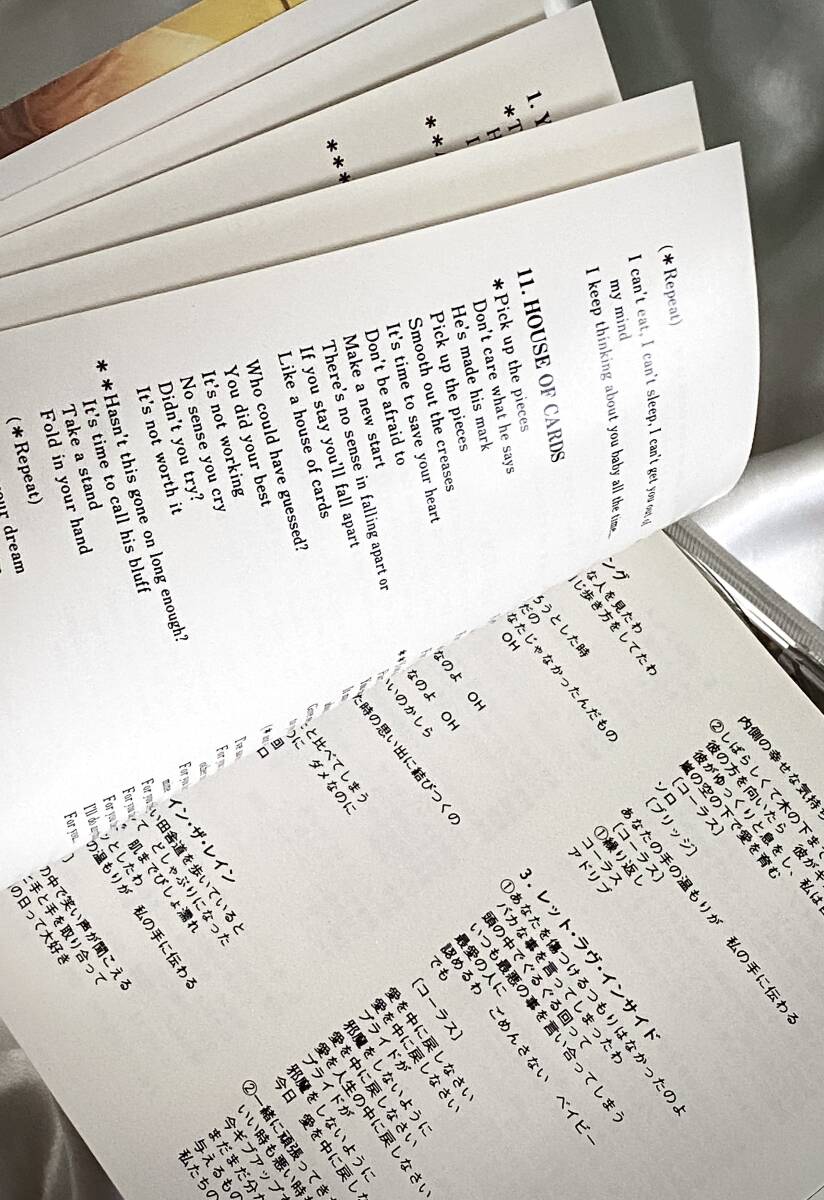 (＊Repeat)
I can't eat, I can't sleep, I can't get you out of
my mind
I keep thinking about you baby all the time
11. HOUSE OF CARDS
＊Pick up the pieces
Don't care what he says
He's made his mark
Pick up the pieces
Smooth out the creases
It's time to save your heart
Don't be afraid to
Make a new start
There's no sense in falling apart or
If you stay you'll fall apart
Like a house of cards
Who could have guessed?
You did your best
It's not working
No sense you cry
Didn't you try?
It's not worth it
＊＊Hasn't this gone on long enough?
It's time to call his bluff
Take a stand
Fold in your hand
(＊Repeat)
your dream
1. Y
＊T
H
I
＊＊
＊＊＊
ング
な人を見たわ
じ歩き方をしてたわ
ろうとした時
だの
なたじゃなかったんだもの
OH
なのよ OH
なのよ OH
いのかしら
た時の思い出に結びつくの
と比べてしまう
に ダメなのに
回
ロ
イン・ザ・レイン
い田舎道を歩いていると
て どしゃぶりになった
肌までびしょ濡れ
ッとしたわ
の温もりが 私の手に伝わる
の中で笑い声が聞こえる
手と手を取り合って
の日って大好き
内側の幸せな気持ち
②しばらくして木の下まで
彼の方を向いたら 彼がキ
彼がゆっくりと息をし、私は
嵐の空の下で愛を育む
〔コーラス〕
ソロ
〔ブリッジ〕
あなたの手の温もりが 私の手に伝わる
〔コーラス〕
①繰り返し
コーラス
アドリブ
3. レット・ラヴ・インサイド
①あなたを傷つけるつもりはなかったのよ
バカな事を言ってしまったわ
頭の中でぐるぐる回って
いつも最悪の事を言い合ってしまう
最愛の人に
認めるわ ごめんさない ベイビー
でも
〔コーラス〕
愛を中に戻しなさい
愛を中に戻しなさい
プライドが
邪魔をしないように
愛を中に戻しなさい
愛を人生の中に戻しなさい
プライドが
邪魔をしないように
今日 愛を中に戻しな
②一緒に頑張ってき
いい時も悪い時
今ギブアップ
まだまだ分
与えるもの
私たちの